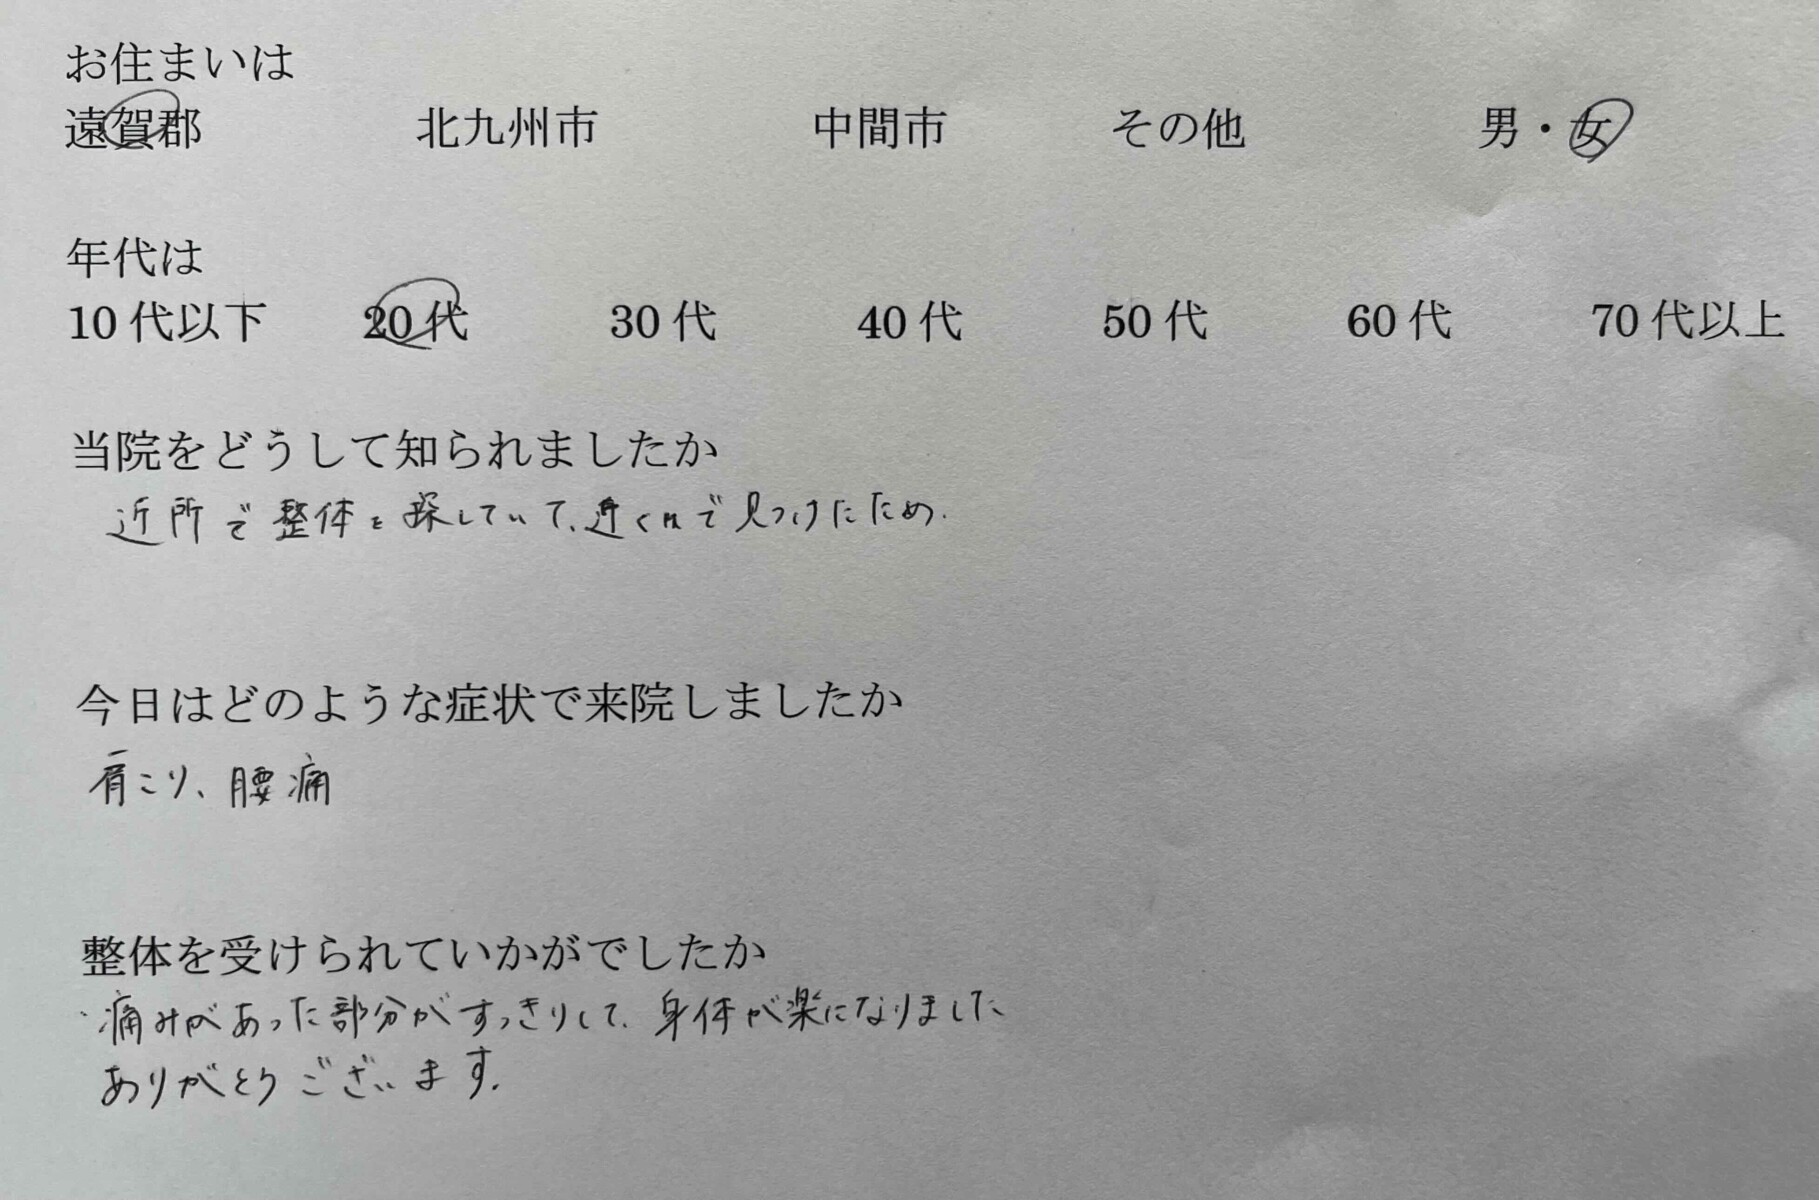 お住まいは
遠賀郡 北九州市 中間市 その他 男・女
年代は
10代以下 20代 30代 40代 50代 60代 70代以上
当院をどうして知られましたか
近所で整体を探していて、近くで見つけたため.
今日はどのような症状で来院しましたか
肩こり、腰痛
整体を受けられていかがでしたか
痛みがあった部分がすっきりして、身体が楽になりました
ありがとうございます.